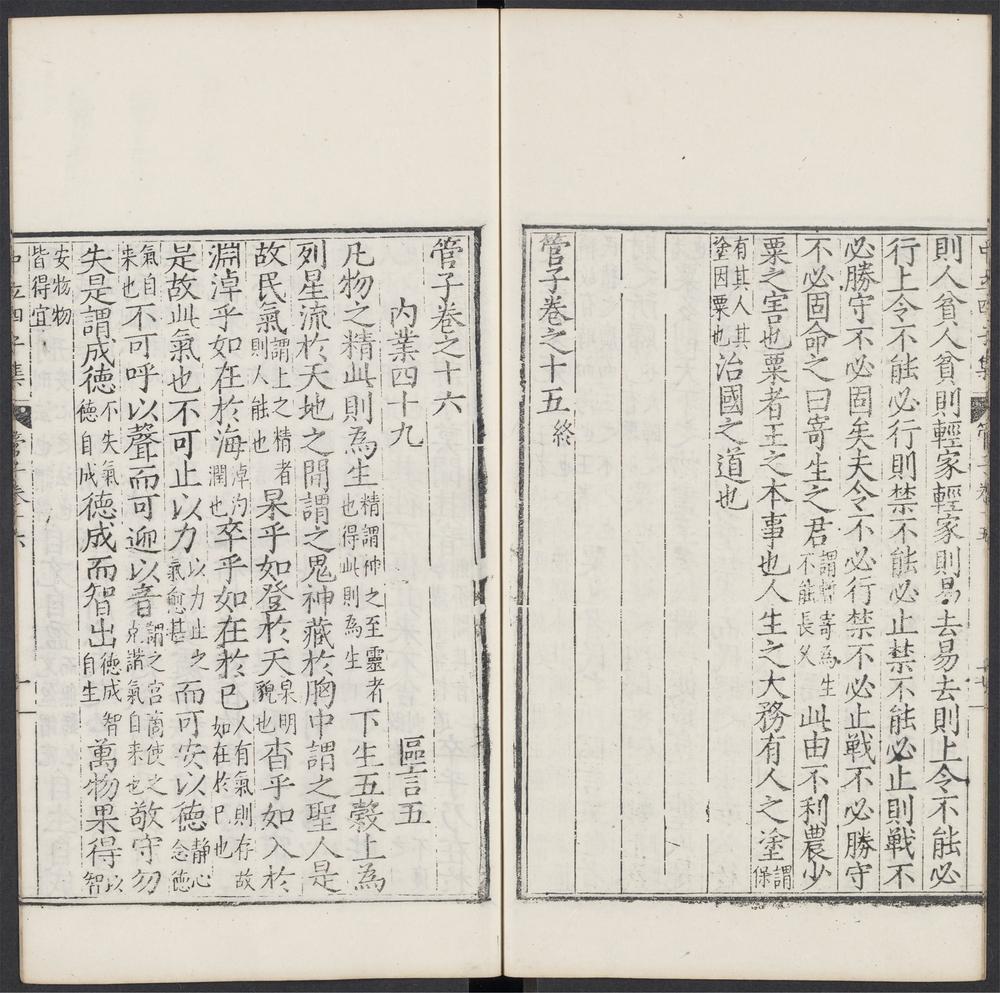 則人貧人貧則輕家輕家則易去易去則上令不能必
行上令不能必行則禁不能必止禁不能必止則戰不
必勝守不必固矣夫令不必行禁不必止戰不必勝守
不必固命之曰寄生之君謂暫寄為生不能長久此由不利農少
粟之害也粟者王之本事也人生之大務有人之塗謂保
有其人其塗因粟也治國之道也
管子卷之十五終
管子卷之十六
內業四十九 區言五
凡物之精此則為生精謂神之至靈者也得此則為生下生五穀上為
列星流於天地之間謂之鬼神藏於胸中謂之聖人是
故民氣謂上之精者則人能也杲乎如登於天杲明貌也杳乎如入於
淵淖乎如在於海淖汋潤也卒乎如在於已人有氣則存故如在於已也
是故此氣也不可止以力以力止之氣愈甚而可安以德靜心念德
氣自来也不可呼以聲而可迎以音謂之宮商使之克諧氣自来也敬守勿
失是謂成德不失氣德自成德成而智出德成智自生萬物果得以智
安物物皆得宜